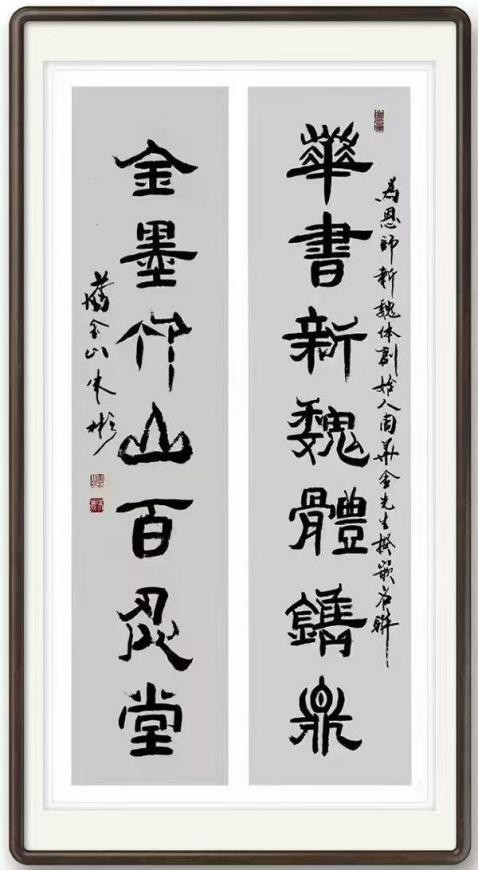 為恩師新魏体創始人周華金先生撰嵌名聯
華書新魏體鐫鼎
金墨竹山百忍堂
舊金山朱彬